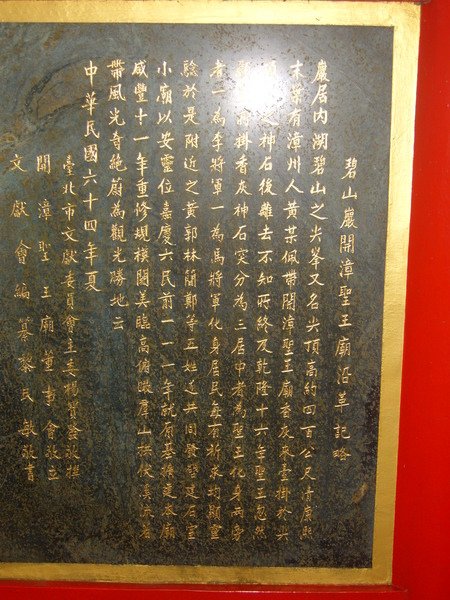 碧山巖開漳聖王廟沿革記略
巖居內湖碧山之尖峯又名尖頂高約四百公尺清康熙
末葉有漳州人黃某佩帶開漳聖王廟香灰來臺掛於尖
神石後離去不知所終及乾隆十六年聖王忽然
掛香灰神石突分為三居中者為聖王化身兩旁
者一為李將軍一為馬將軍化身居民奉有祈求均顯靈
驗於是附近之黃郭林簡鄭等五姓遂共同發起建石室
小廟以安靈位嘉慶六民前一一一年就原基擴建本廟
咸豐十一年重修規模閎美臨高俯瞰羣山拱伏溪流若
帶風光奇絕蔚為觀光勝地云
中華民國六十四年夏
臺北市文獻委員會主委楊寶發敬撰
開漳聖王廟董事會敬立
文獻會編纂黎民敏敬書